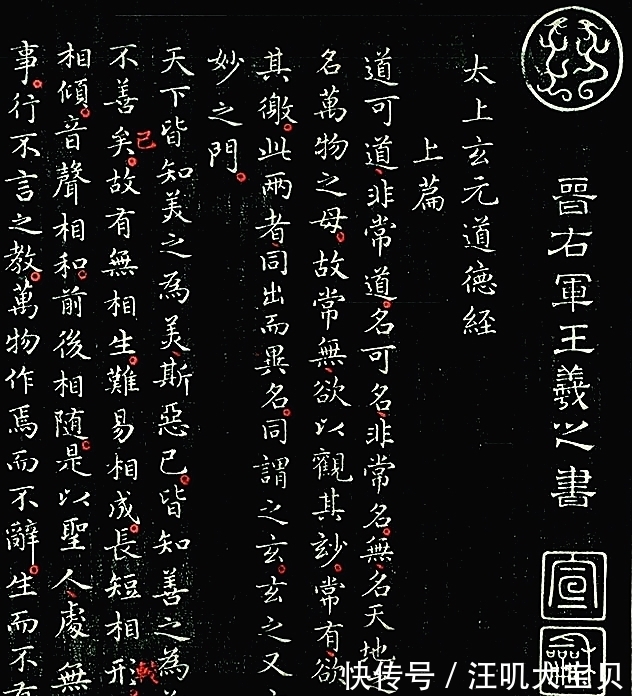 晉右軍王羲之書
宣
太上玄元道德経
上篇
道可道、非常道。名可名、非常名。無、名天地
名萬物之母。故常無、欲以觀其玅。常有、欲
其徼。此兩者、同出而異名。同謂之玄。玄之又
妙之門。
天下皆知美之為美、斯惡已。皆知善之為
不善矣。故有無相生。難易相成。長短相形
已
較
相傾。音聲相和。前後相随。是以聖人、處無
事。行不言之教。萬物作焉而不辭。生而不有
快传号 / 汪叽大宝贝